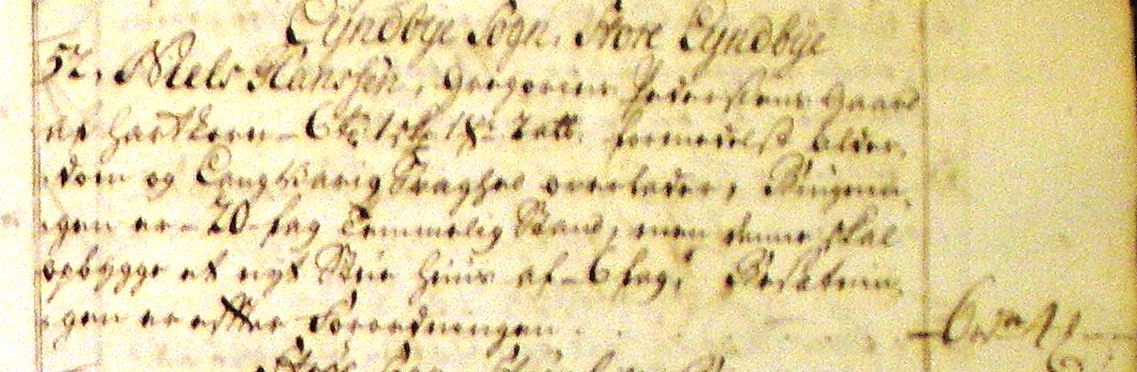 Lyndbye Sogn, Store Lyndbye
52, Niels Hanssøn, Gregorius Pedersens Gaard
af Hartkorn 6 td 1 skp 1 f 2 alb. formedelst alder,
dom og Langvarig Svaghed overlader, Bÿgnin,
gen er 20 fag Temmelig Stand, men denne skal
opbygge et nyt Huus af 6 fag, Besætnin,
gen er efter Forordningen
6